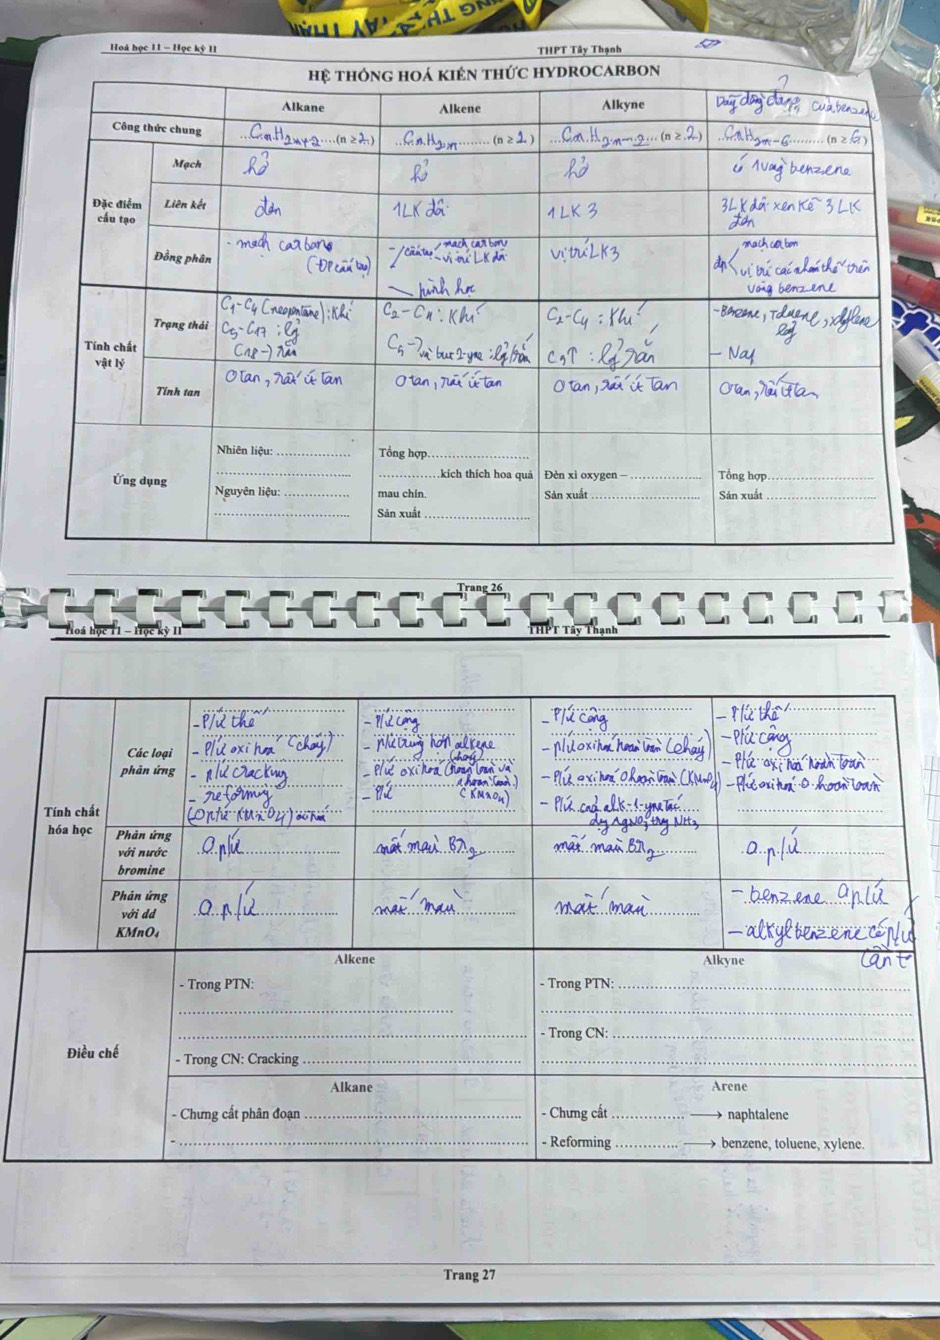 Hoá học 11 – Học kỳ II
THPT Tây Thạnh
HỆ THỐNG HOÁ KIẾN THỨC HYDROCARBON
Alkane
Alkene
Alkyne
Dãy đồng đẳng của benzene
?
Công thức chung
CnH2n+2 (n ≥ 1)
CnH2n (n ≥ 2)
CnH2n-2 (n ≥ 2)
CnH2n-6 (n ≥ 6)
Đặc điểm cấu tạo
Mạch
hở
hở
hở
có 1 vòng benzene
Liên kết
đơn
1LK đôi
1 LK 3
3LK đôi xen kẽ 3 LK
đơn
Đồng phân
- mạch carbon
(ĐP cấu tạo)
cấu tạo
mạch carbon
- vị trí LK đôi
hình học
vị trí LK3
mạch carbon
vị trí các nhóm thế trên
vòng benzene
Tính chất vật lý
Trạng thái
C1-C4 (neopentane): khí
C5-C17 : lỏng
C18 -> rắn
C2 - C4 : khí
C2-C4 : khí
C5↑ : lỏng rắn
- Benzene, Toluene, xylene
lỏng
Tính tan
0 tan, rất ít tan
0 tan, rất ít tan
0 tan, rất ít tan
0 tan, rất ít tan
Ứng dụng
Nhiên liệu:
Nguyên liệu:
Tổng hợp
kích thích hoa quả
mau chín.
Sản xuất
Đèn xì oxygen –
Sản xuất
Tổng hợp
Sản xuất
Trang 26
Hoá học 11 – Học kỳ II
THPT Tây Thạnh
Tính chất hóa học
Các loại phản ứng
- P/ứ thế
- P/ứ oxi hoá (cháy)
- p/ứ cracking
- reforming
- P/ứ cộng
- p/ứ trùng hợp alkene
(cháy)
- P/ứ oxi hoá (hoàn toàn và
0 hoàn toàn)
- P/ứ (KMnO4)
- P/ứ cộng
- p/ứ oxi hoá hoàn toàn (cháy)
- P/ứ oxi hoá 0 hoàn toàn (KMnO4)
- P/ứ của alk-1-yne tác
dụng AgNO3 trong NH3
- P/ứ thế
- P/ứ cộng
- P/ứ oxi hoá hoàn toàn
- P/ứ oxi hoá 0 hoàn toàn
Phản ứng
với nước
bromine
0 p/ứ
mất màu Br2
mất màu Br2
0 p/ứ
Phản ứng
với dd
KMnO4
0 p/ứ
mất màu
mất màu
- benzene 0 p/ứ
- alkylbenzene có p/ứ
cần t
Điều chế
Alkene
- Trong PTN:
- Trong CN: Cracking
Alkyne
- Trong PTN:
- Trong CN:
Alkane
- Chưng cất phân đoạn
-
Arene
- Chưng cất → naphtalene
- Reforming → benzene, toluene, xylene.
Trang 27